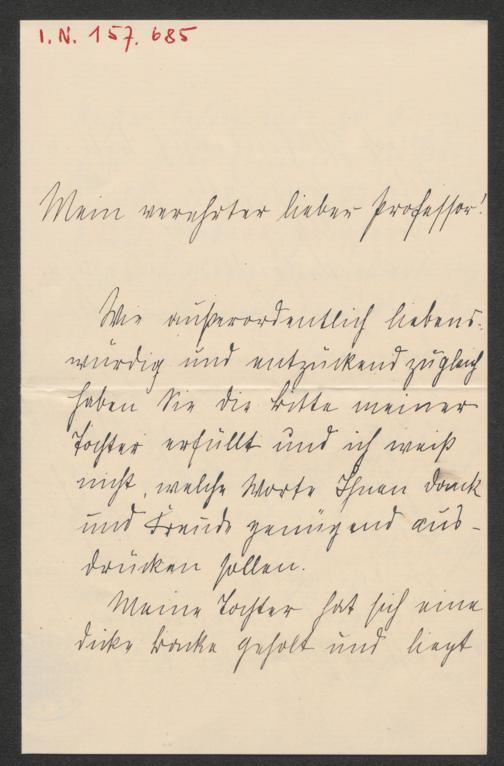 I.N. 157.685
Mein verehrter lieber Professor!
Wie außerordentlich liebens-
würdig und entzückend zugleich
haben Sie die Bitte meiner
Tochter erfüllt und ich weiß
nicht, welche Worte Ihnen Dank
und Freude genügend aus-
drücken sollen.
Meine Tochter hat sich eine
dicke Backe geholt und liegt